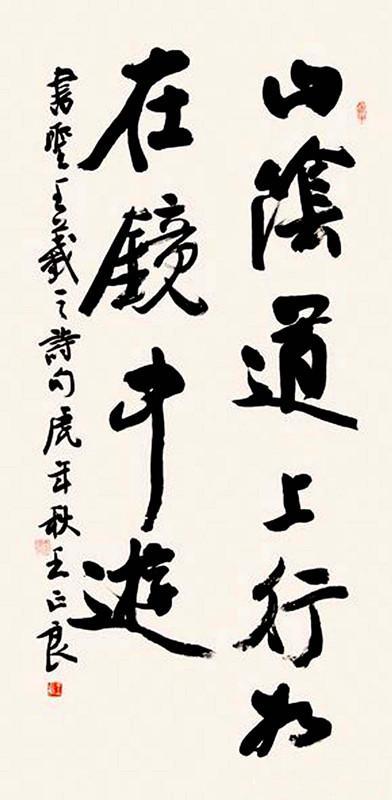 山陰道上行如
在鏡中遊
書聖王羲之詩句虎年秋王正良